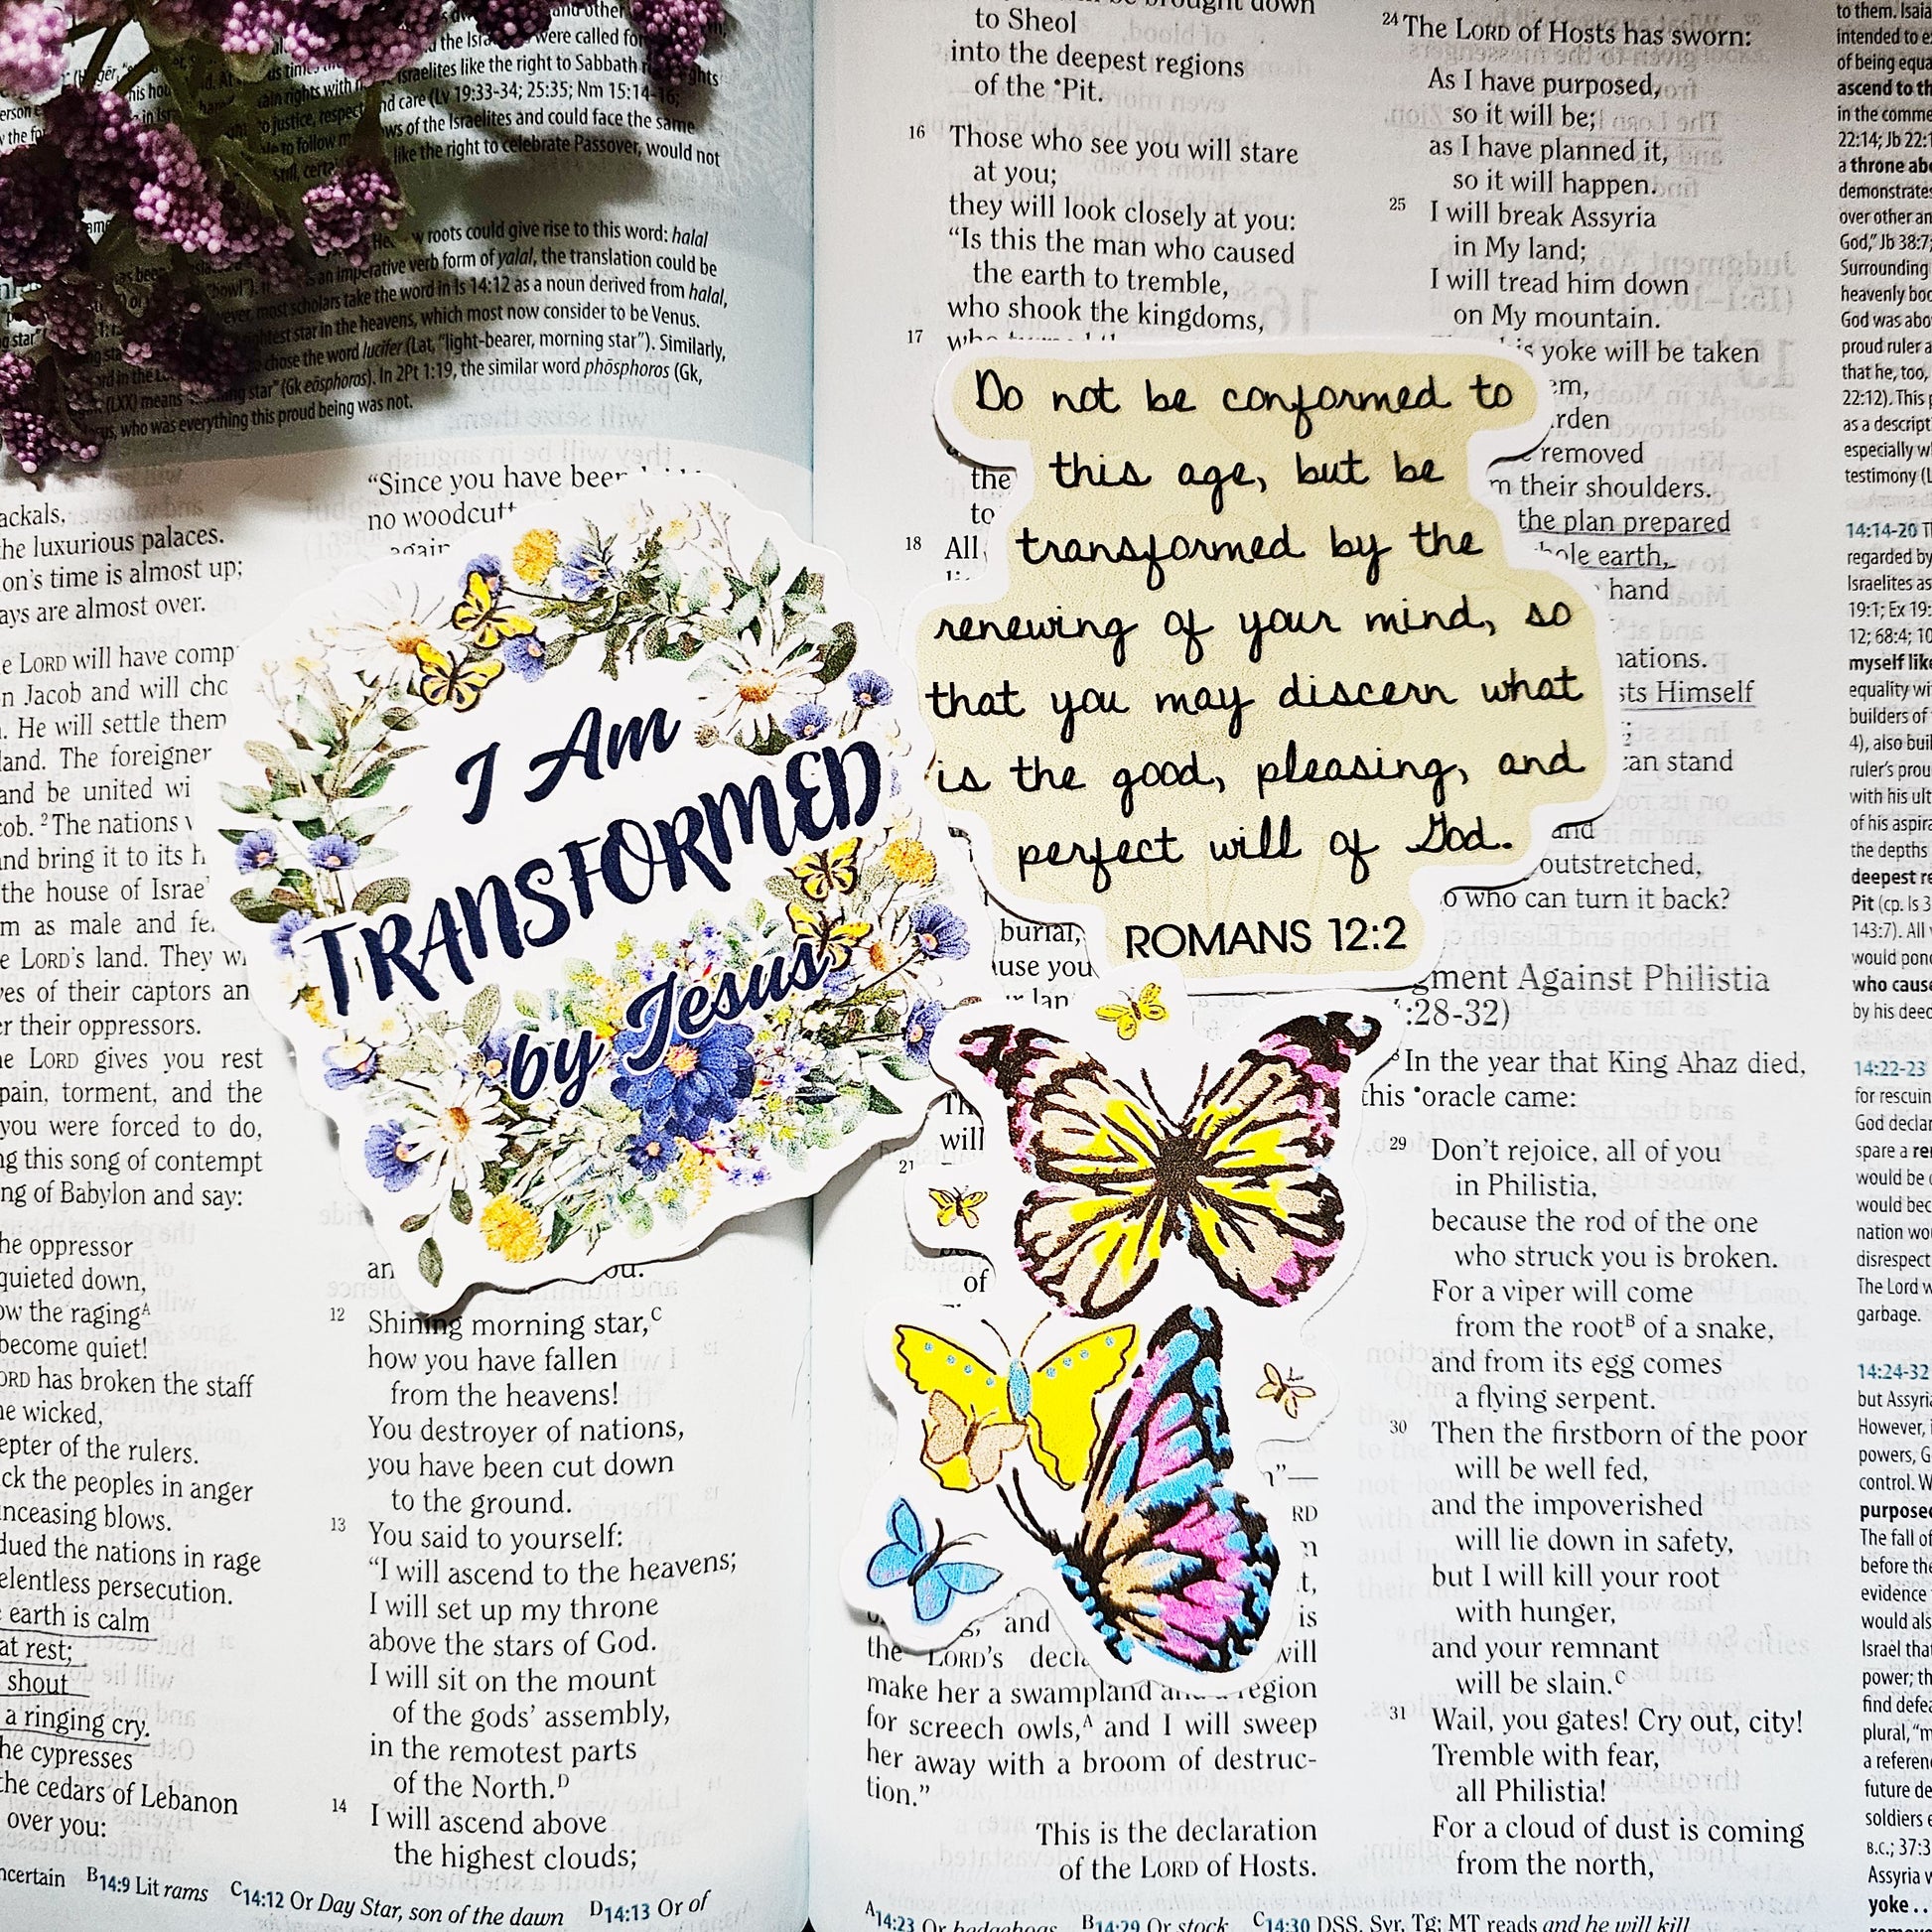 the Isra were called for
Israelites like the right to Sabbath
and care (Lv 19:33-34; 25:35; Nm 15:14-16;
to justice, respect
ws of the Israelites and could face the same
like the right to celebrate Passover, would not
w roots could give rise to this word: halal
an imperative verb form of yalal, the translation could be
most scholars take the word in Is 14:12 as a noun derived from halal,
ghtest star in the heavens, which most now consider to be Venus.
chose the word lucifer (Lat, "light-bearer, morning star"). Similarly,
star" (Gk eōsphoros). In 2Pt 1:19, the similar word phōsphoros (Gk,
(LXX) means
who was everything this proud being was not.
ackals,
he luxurious palaces.
on's time is almost up;
ays are almost over.
e LORD will have comp
n Jacob and will cho
. He will settle them
land. The foreigner
and be united wi
cob. 2 The nations
and bring it to its h
the house of Israe
m as male and fe
e LORD's land. They w
ves of their captors an
er their oppressors.
he LORD gives you rest
pain, torment, and the
you were forced to do,
ng this song of contempt
ng of Babylon and say:
he oppressor
quieted down,
ow the ragingA
become quiet!
ORD has broken the staff
he wicked,
epter of the rulers.
ck the peoples in anger
nceasing blows.
dued the nations in rage
elentless persecution.
earth is calm
at rest;
shout
a ringing cry.
he cypresses
the cedars of Lebanon
over you:
"Since you have been
no woodcutt
again
I Am
TRANSFORMED
by Jesus
an
ou.
12 Shining morning star,C
how you have fallen
from the heavens!
You destroyer of nations,
you have been cut down
to the ground.
13 You said to yourself:
"I will ascend to the heavens;
I will set up my throne
above the stars of God.
I will sit on the mount
of the gods' assembly,
in the remotest parts
of the North.D
14 I will ascend above
the highest clouds;
ncertain B14:9 Lit rams C14:12 Or Day Star, son of the dawn D14:13 Or of
brought down
to Sheol
into the deepest regions
of the •Pit.
16 Those who see you will stare
at you;
they will look closely at you:
"Is this the man who caused
the earth to tremble,
who shook the kingdoms,
17 who
the
to
18 All
Do not be conformed to
this age, but be
transformed by the
renewing of your mind, so
that you may discern what
is the good, pleasing, and
perfect will of God.
ROMANS 12:2
burial,
use you
lan
will
21
of
n"—
RD
t,
is
and
the LORD's decla will
make her a swampland and a region
for screech owls,A and I will sweep
her away with a broom of destruc-
tion."
This is the declaration
of the LORD of Hosts.
24 The LORD of Hosts has sworn:
As I have purposed,
so it will be;
as I have planned it,
so it will happen.
25 I will break Assyria
in My land;
I will tread him down
on My mountain.
is yoke will be taken
em,
rden
removed
m their shoulders.
the plan prepared
hole earth,
hand
nations.
sts Himself
can stand
and
outstretched,
o who can turn it back?
gment Against Philistia
:28-32)
In the year that King Ahaz died,
this •oracle came:
29 Don't rejoice, all of you
in Philistia,
because the rod of the one
who struck you is broken.
For a viper will come
from the rootB of a snake,
and from its egg comes
a flying serpent.
30 Then the firstborn of the poor
will be well fed,
and the impoverished
will lie down in safety,
but I will kill your root
with hunger,
and your remnant
will be slain.C
31 Wail, you gates! Cry out, city!
Tremble with fear,
all Philistia!
For a cloud of dust is coming
from the north,
A14:23 Or hedgehogs B14:29 Or stock C14:30 DSS, Syr, Tg; MT reads and he will kill
to them. Isaia
intended to e
of being equa
ascend to th
in the comme
22:14; Jb 22:1
a throne abo
demonstrates
over other an
God," Jb 38:7;
Surrounding
heavenly bod
God was abo
proud ruler a
that he, too,
22:12). This p
as a descripti
especially w
testimony (L
14:14-20 T
regarded by
Israelites as
19:1; Ex 19:
12; 68:4; 10
myself like
equality wi
builders of
4), also buil
ruler's prou
with his ult
of his aspira
the depths
deepest re
Pit (cp. Is 3
143:7). All
would pon
who cause
by his deed
14:22-23
for rescuin
God declar
spare a ren
would be
would bec
nation wo
disrespect
The Lord w
garbage.
14:24-32
but Assyria
However,
powers, G
control. W
purposed
The fall of
before the
evidence
would als
Israel that
power; th
find defea
plural, "m
a referen
future de
soldiers e
B.C.; 37:3
Assyria w
yoke . .